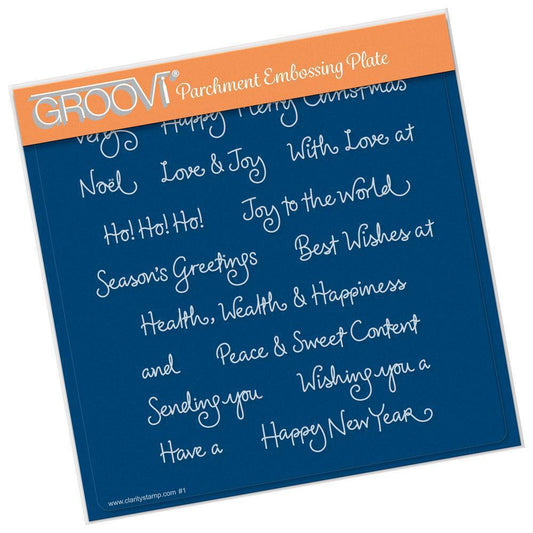 GROOVi® Parchment Embossing Plate
very Happy Merry Christmas
Noël Love & Joy With Love at
Ho! Ho! Ho! Joy to the World
Season's Greetings Best Wishes at
Health, Wealth & Happiness
and Peace & Sweet Content
Sending you Wishing you a
Have a Happy New Year
www.claritystamp.com #1